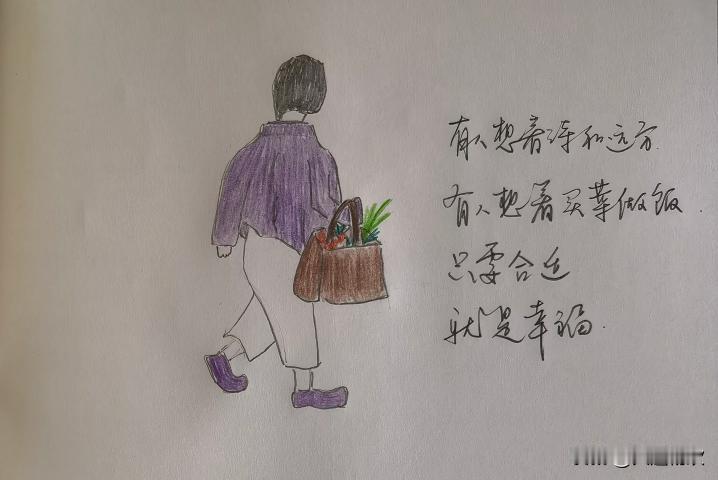 有人想着诗和远方.
有人想着买菜做饭.
只要合适
就是幸福.